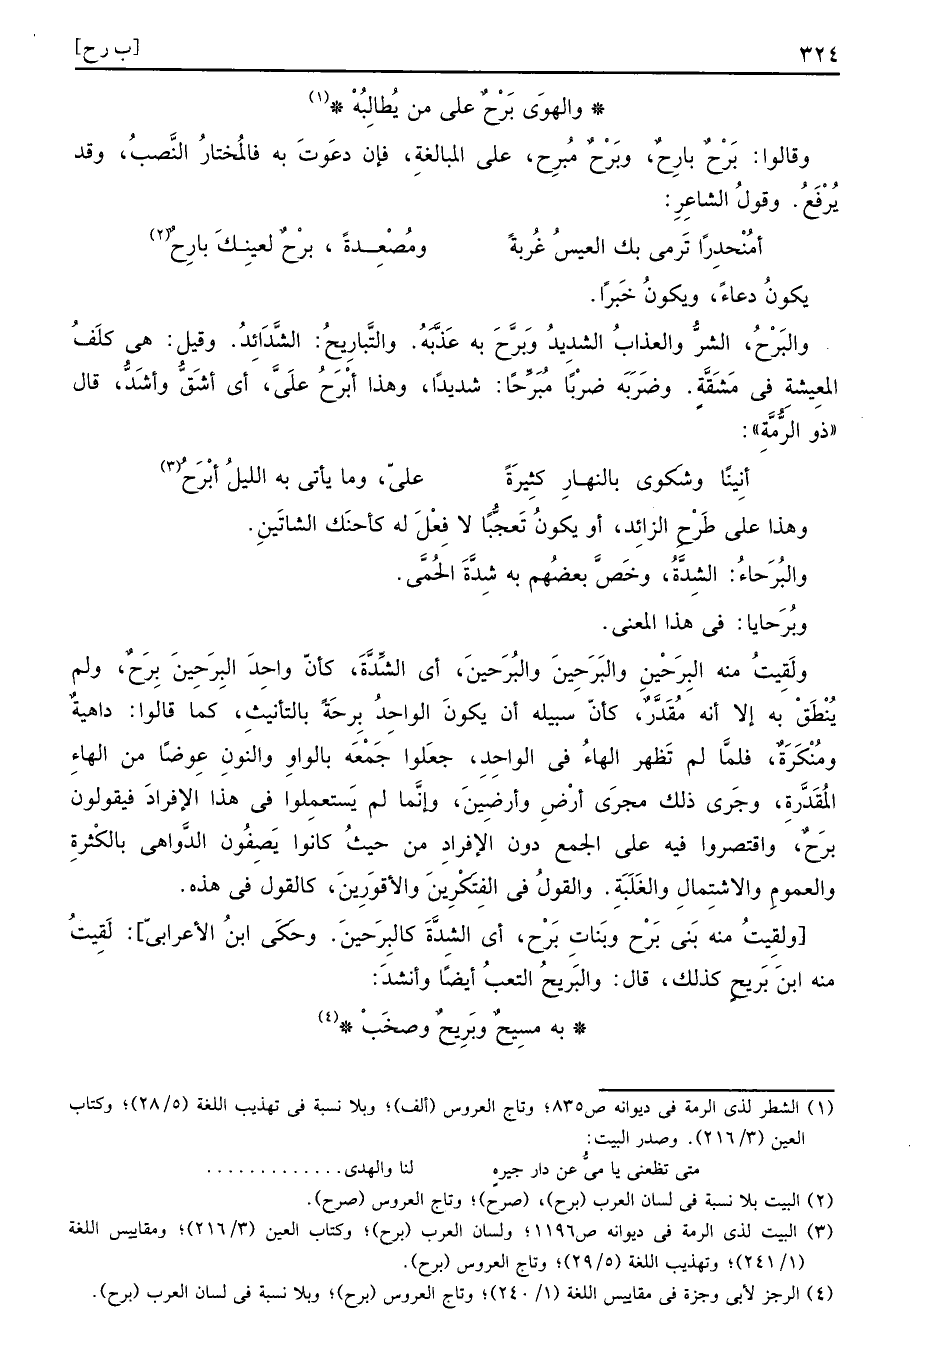 ٣٢٤ [ب ر ح]
* والهوَى بَرْحٌ على من يُطالِبُهْ *(١)
وقالوا: بَرْحٌ بارِحٌ، وبَرْحٌ مُبرِح، على المبالغةِ، فإن دعَوتَ به فالمُختارُ النَّصبُ، وقد
يُرْفَعُ. وقولُ الشاعرِ:
أمُنْحدِرًا تَرمى بك العيسُ غُربةً ومُصْعِـدةً ، برْحٌ لعينـكَ بارِحُ(٢)
يكونُ دعاءً، ويكونُ خَبرًا.
والبَرْحُ، الشرُّ والعذابُ الشديدُ وَبَرَّحَ به عَذَّبَهُ. والتَّباريحُ: الشَّدَائدُ. وقيل: هى كلَفُ
المعيشةِ فى مَشَقَّةٍ. وضَرَبَه ضربًا مُبَرِّحًا: شديدًا، وهذا أبْرَحُ علىَّ، أى أشَقُّ وأشَدُّ، قال
«ذو الرمَّةِ»:
أنينًا وشكوى بالنهـارِ كثيرَةً علىّ، وما يأتى به الليلُ أبْرَحُ(٣)
وهذا على طَرْحِ الزائد، أو يكونُ تَعجبًا لا فِعْلَ له كأحنَك الشاتَينِ.
والبُرَحاءُ: الشدَّةُ، وخَصَّ بعضُهم به شدَّةَ الحُمَّى.
وبُرَحايا: فى هذا المعنى.
ولَقِيتُ منه البِرَحْينِ والبَرَحِينَ والبُرَحينَ، أى الشِّدَّةَ، كأنّ واحِدَ البِرَحينَ بِرَحٌ، ولم
يُنْطَقْ به إلا أنه مُقَدَّرٌ، كأنّ سبيله أن يكونَ الواحِدُ بِرحةً بالتأنيثِ، كما قالوا: داهيةٌ
ومُنْكَرَةٌ، فلمَّا لم تَظهر الهاءُ فى الواحِدِ، جعَلوا جَمْعَه بالواوِ والنون عوضًا من الهاءِ
المُقَدَّرة، وجَرى ذلك مجرَى أرْضٍ وأرضِينَ، وإنَّما لم يَستعملوا فى هذا الإفرادَ فيقولون
بِرَحٌ، واقتصروا فيه على الجمع دون الإفرادِ من حيثُ كانوا يَصِفُون الدَّواهى بالكثرةِ
والعمومِ والاشتمال والغَلَبَةِ. والقولُ فى الفِتَكْرِينَ والأقوَرِينَ، كالقول فى هذه.
[ولقيتُ منه بَنى بَرْح وبَناتِ بَرْح، أى الشدَّةَ كالبِرَحينَ. وحكَى ابنُ الأعرابىّ]: لَقِيتُ
منه ابنَ بَريحٍ كذلك، قال: والبَريحُ التعبُ أيضًا وأنشدَ:
* به مسيحٌ وبَرِيحٌ وصخَبْ *(٤)
(١) الشطر لذى الرمة فى ديوانه ص٨٣٥؛ وتاج العروس (ألف)؛ وبلا نسبة فى تهذيب اللغة (٢٨/٥)؛ وكتاب
العين (٢١٦/٣). وصدر البيت:
متى تظعنى يا مىُّ عن دار جيرهٍ لنا والهدى.............
(٢) البيت بلا نسبة فى لسان العرب (برح)، (صرح)؛ وتاج العروس (صرح).
(٣) البيت لذى الرمة فى ديوانه ص١١٩٦؛ ولسان العرب (برح)؛ وكتاب العين (٢١٦/٣)؛ ومقاييس اللغة
(٢٤١/١)؛ وتهذيب اللغة (٢٩/٥)؛ وتاج العروس (برح).
(٤) الرجز لأبى وجزة فى مقاييس اللغة (٢٤٠/١)؛ وتاج العروس (برح)؛ وبلا نسبة فى لسان العرب (برح).